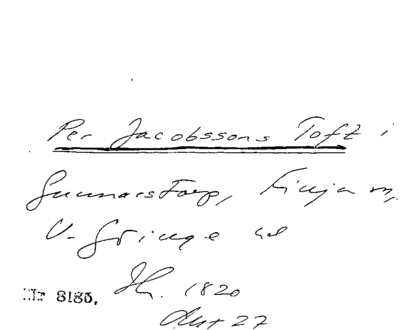 Per Jacobssons Toft i
Gunnarstorp, Finja sn,
V. Göinge hd
Nr 8185. Jb. 1820
Akt 27